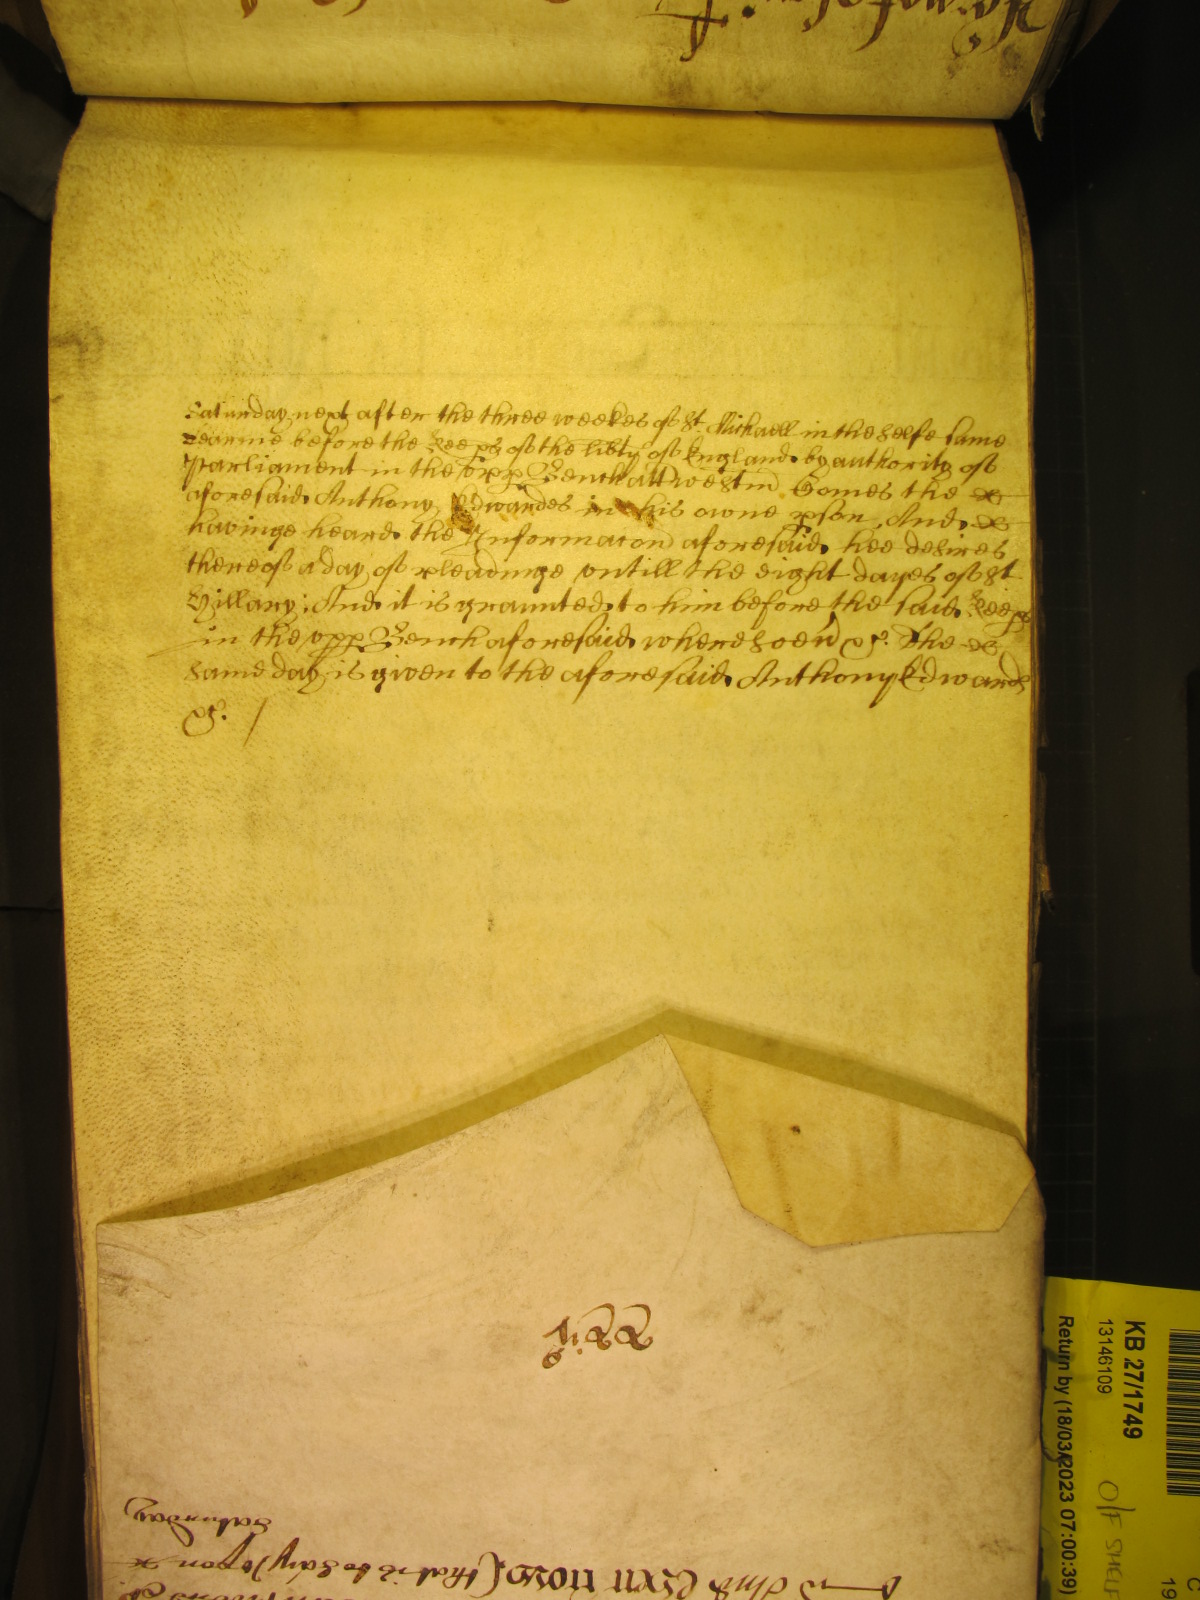 Saturday next after the three weekes of St. Michaell in the selfe same
Tearme before the Keeps of the libty of England by authority of
Parliament in the vpp Bench att Westm Comes the
aforesaid Anthony Edwardes in his owne pson And
havinge heard the Informacon aforesaid hee desires
thereof a day of pleadinge vntill the eight dayes of St
Hillary; And it is graunted to him before the said Keeps
in the vpp Bench aforesaid wheresoev &c. The
same day is given to the aforesaid Anthony Edwards
&c. /
And even now (that is to say) vpon
Saturday
KB 27/1749
13146109
Return by (18/03/2023 07:00:39)
O/F SHELF